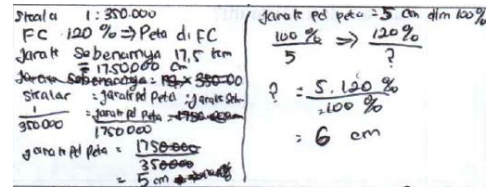 Skala 1 : 350.000
FC 120 % ⇒ Peta di FC
Jarak Sebenarnya 17,5 km
= 1750000 cm
Skalar = jarak pd Peta : jarak Seb.
1/350000 = jarak pd Peta / 1750000
jarak pd Peta = 1750000/350000
= 5 cm
jarak pd peta = 5 cm dlm 100%
100 %/5 ⇒ 120 %/?
? = 5.120 %/100 %
= 6 cm